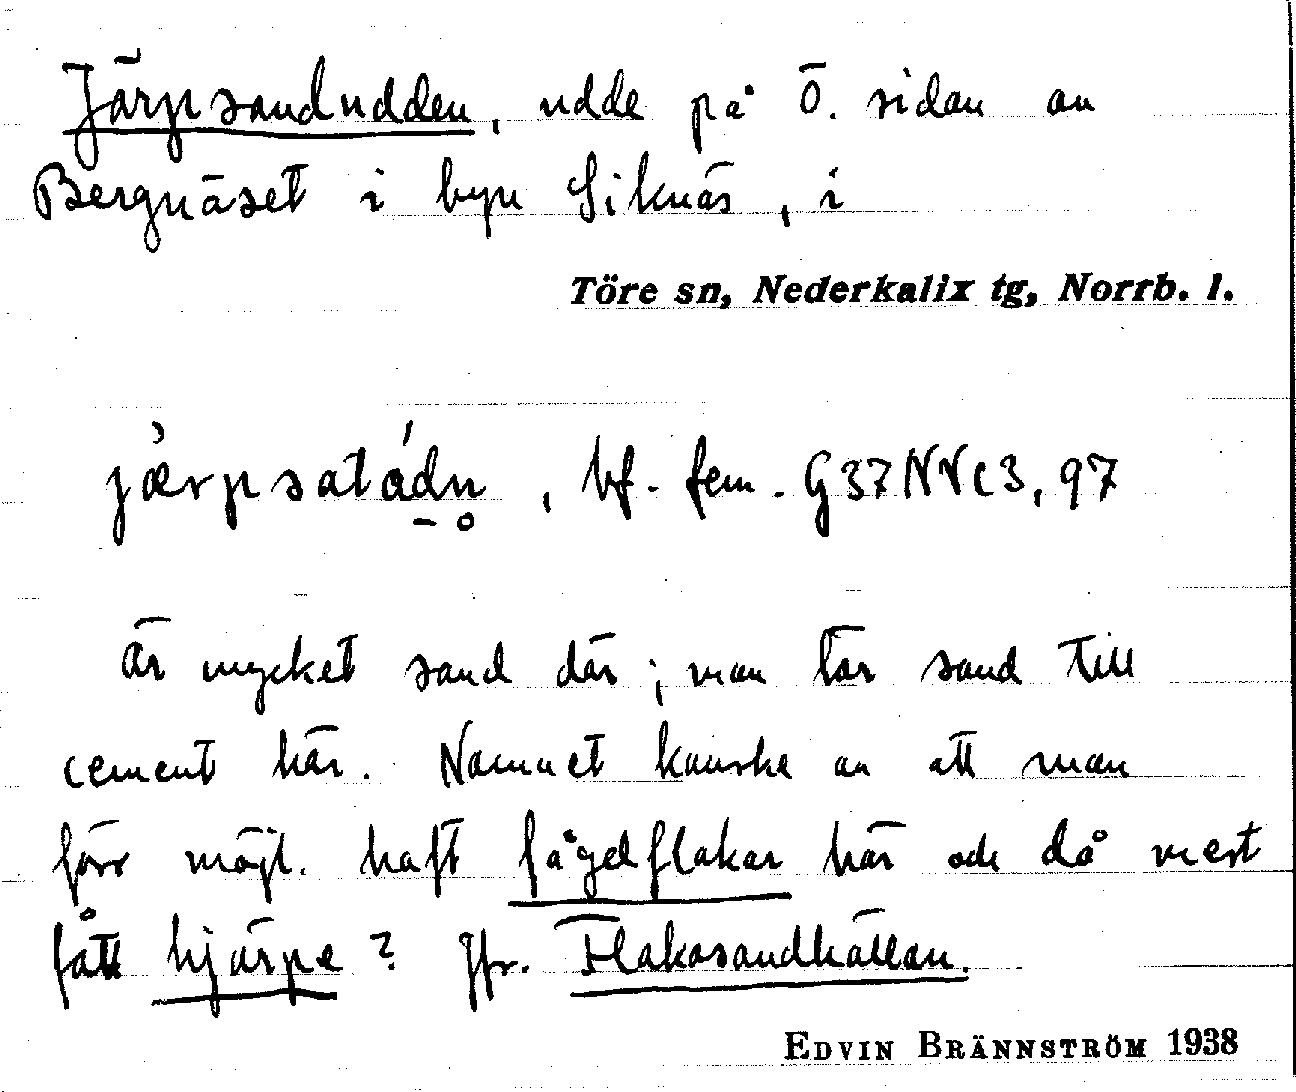 Järpsandudden, udde på Ö. sidan av
Bergnäset i byn Siknäs, i
Töre sn, Nederkalix tg, Norrb. l.
jærpsatádn, bf. fem.
är mycket sand där; man tar sand till
cement här. Namnet kanske av att man
förr möjl. haft fågelflakar här och då mest
fått hjärpe? Jfr. Flakasandhällan.
EDVIN BRÄNNSTRÖM 1938